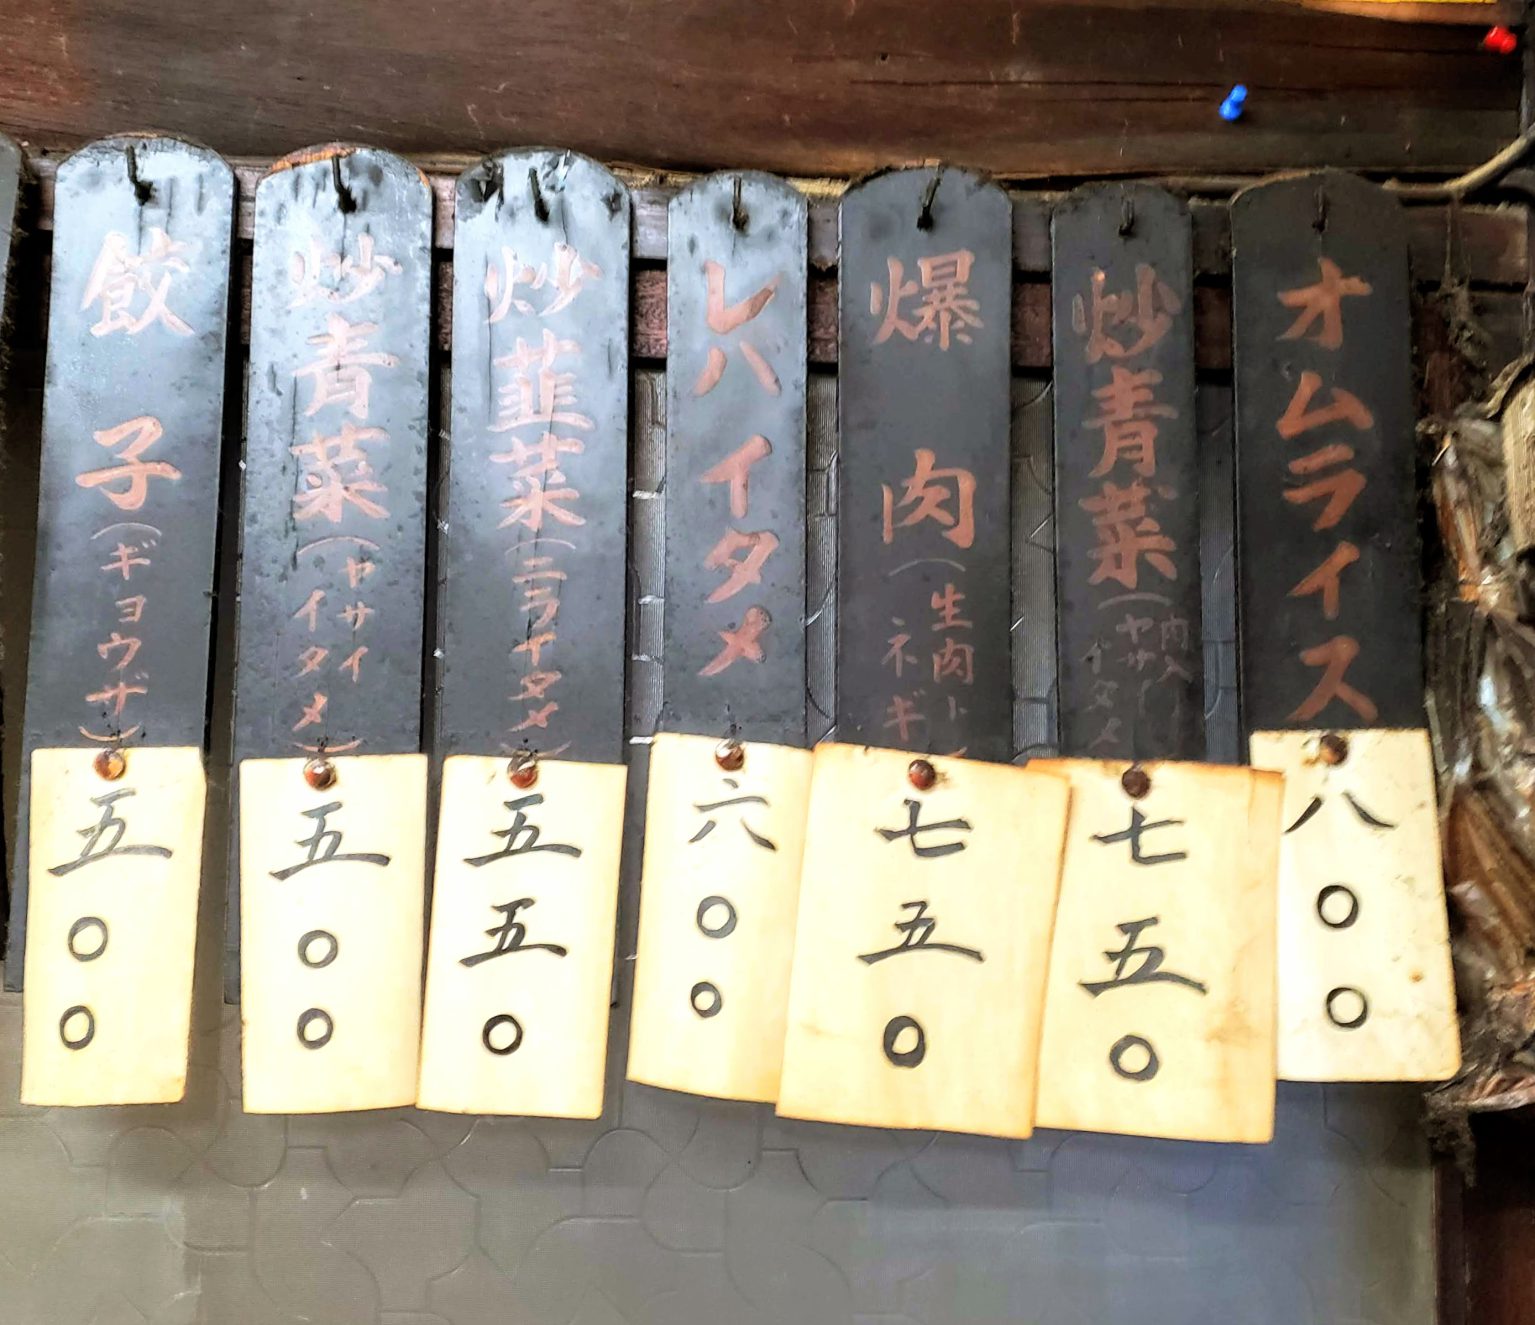 オムライス
八〇〇
炒青菜(肉入
ヤサイイタメ
七五〇
爆肉(生肉ト
ネギ
七五〇
レバイタメ
六〇〇
炒韮菜(ニライタメ)
五五〇
炒青菜(ヤサイ
イタメ)
五〇〇
餃子(ギョウザ)
五〇〇